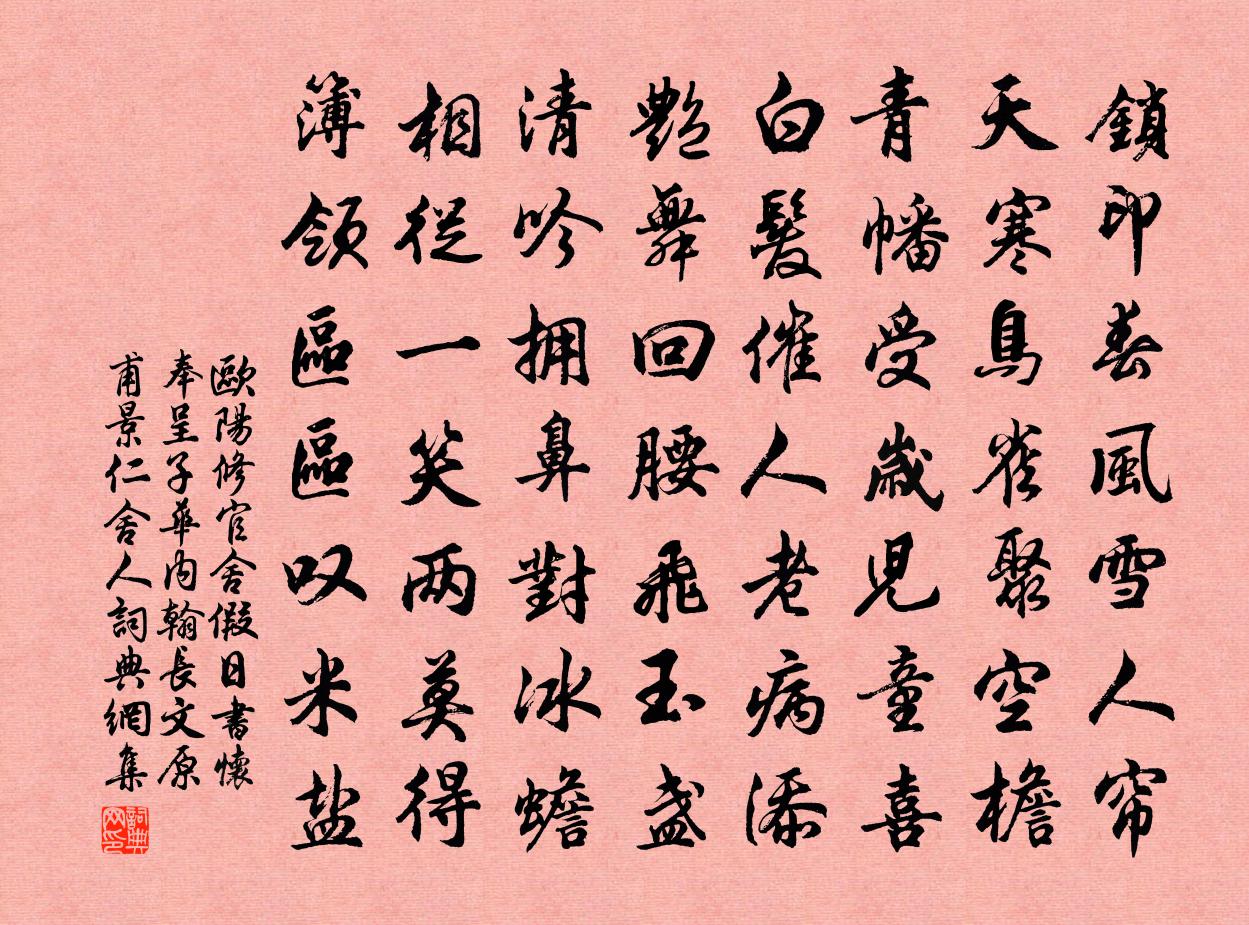 鎖印春風雪人帘
天寒鳥雀聚空檐
青幡受歲児童喜
白髮催人老病添
艷舞回腰飛玉盞
清吟拥鼻對冰蟾
相從一笑两莫得
簿領區區叹米盐
歐陽修官舍假日書懷
奉呈子華内翰長文原
甫景仁舍人詞典網集
詞典网印